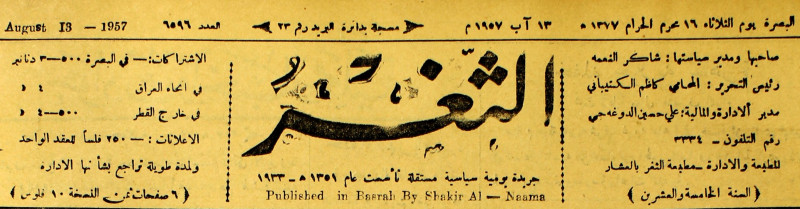 البصرة يوم الثلاثاء ١٦ محرم الحرام ١٣٧٧ هـ
١٣ آب ١٩٥٧ م
مسجلة بدائرة البريد رقم ٢٣
العدد ٦٥٩٦
August 13 - 1957
صاحبها ومدير سياستها : شاكر النعمه
رئيس التحرير : المحامي كاظم الكتيباني
مدير الادارة والمالية : علي حسين الدوغه جي
رقم التلفون - ٣٣٣٤
للمطبعة والادارة - مطبعة الثغر بالعشار
( السنة الخامسة والعشرين )
الثَّغر
جريدة يومية سياسية مستقلة تأسست عام ١٣٥١ هـ - ١٩٣٣
Published in Basrah By Shakir Al - Naama
الاشتراكات :- في البصرة ٥٠٠-٣ دنانير
في انحاء العراق ٤ »
في خارج القطر ٥٠٠-٤ »
الاعلانات :- ٢٥٠ فلساً للعقد الواحد
ولمدة طويلة تراجع بشأنها الاداره
( ٦ صفحات ثمن النسخة ١٠ فلوس )